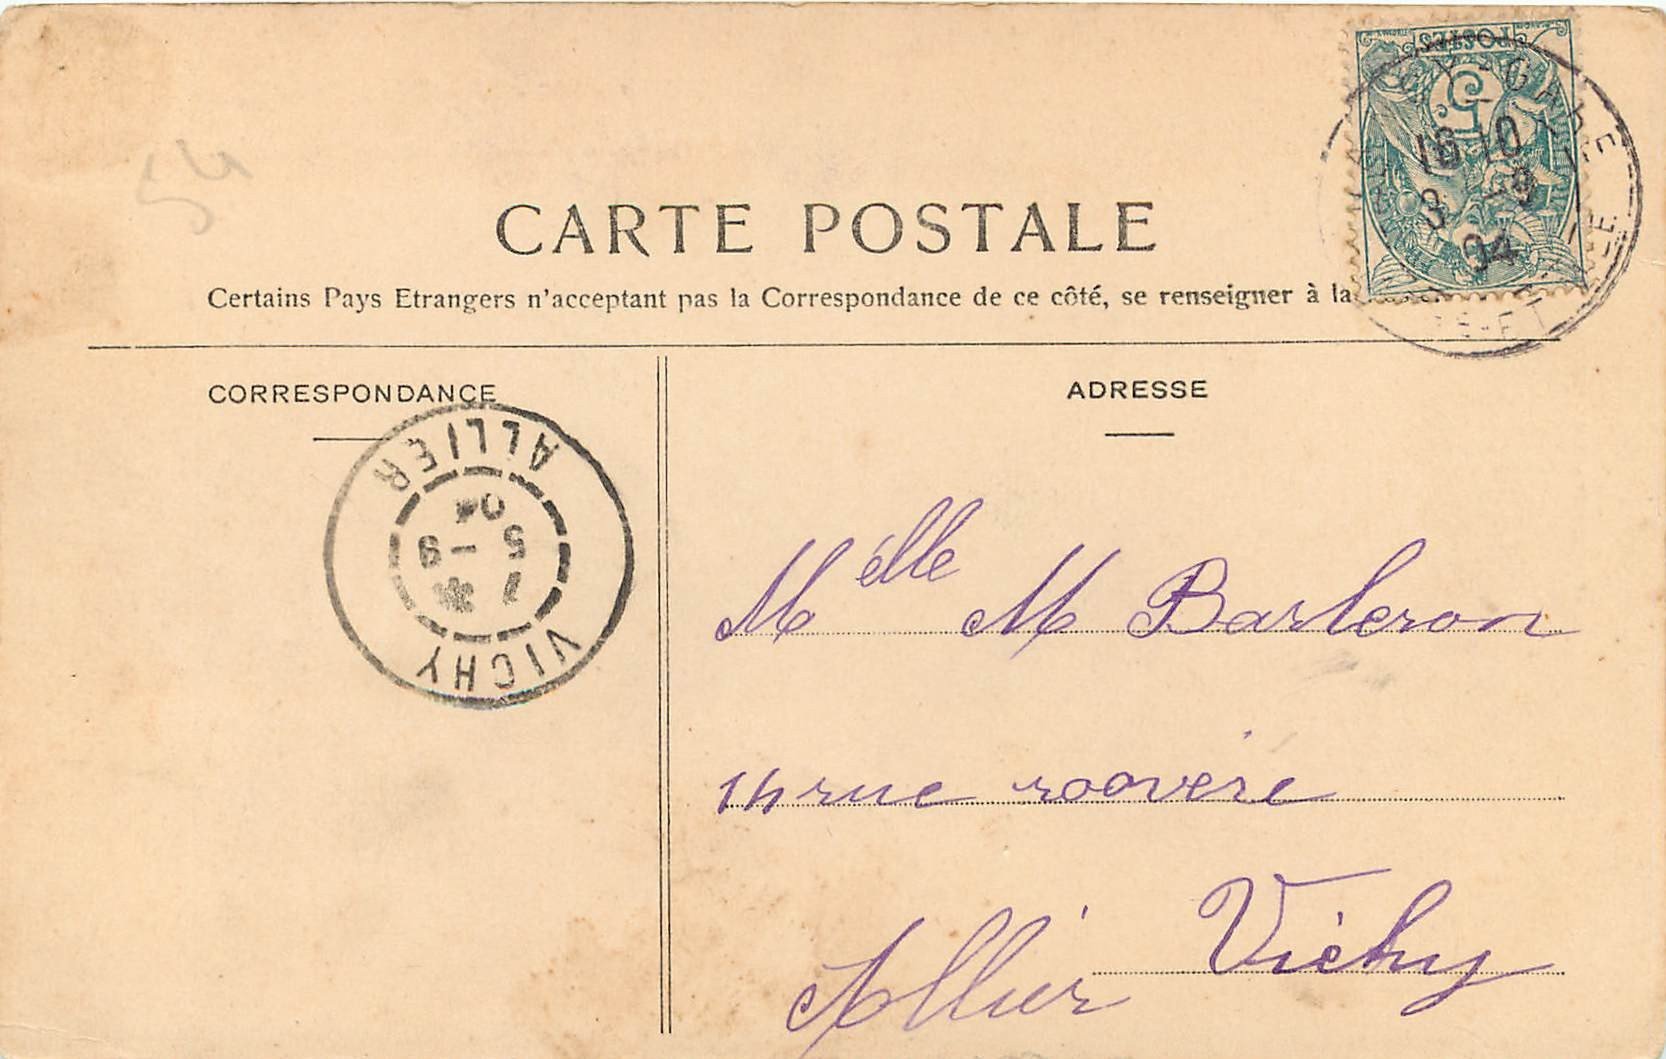 54
CARTE POSTALE
Certains Pays Etrangers n'acceptant pas la Correspondance de ce côté, se renseigner à la
POSTES
5
GARE
16 10
3 -9
04
CORRESPONDANCE
ADRESSE
VICHY
7 *
5 -9
04
ALLIER
Melle M Barleron
14 rue roovère
Vichy
Allier